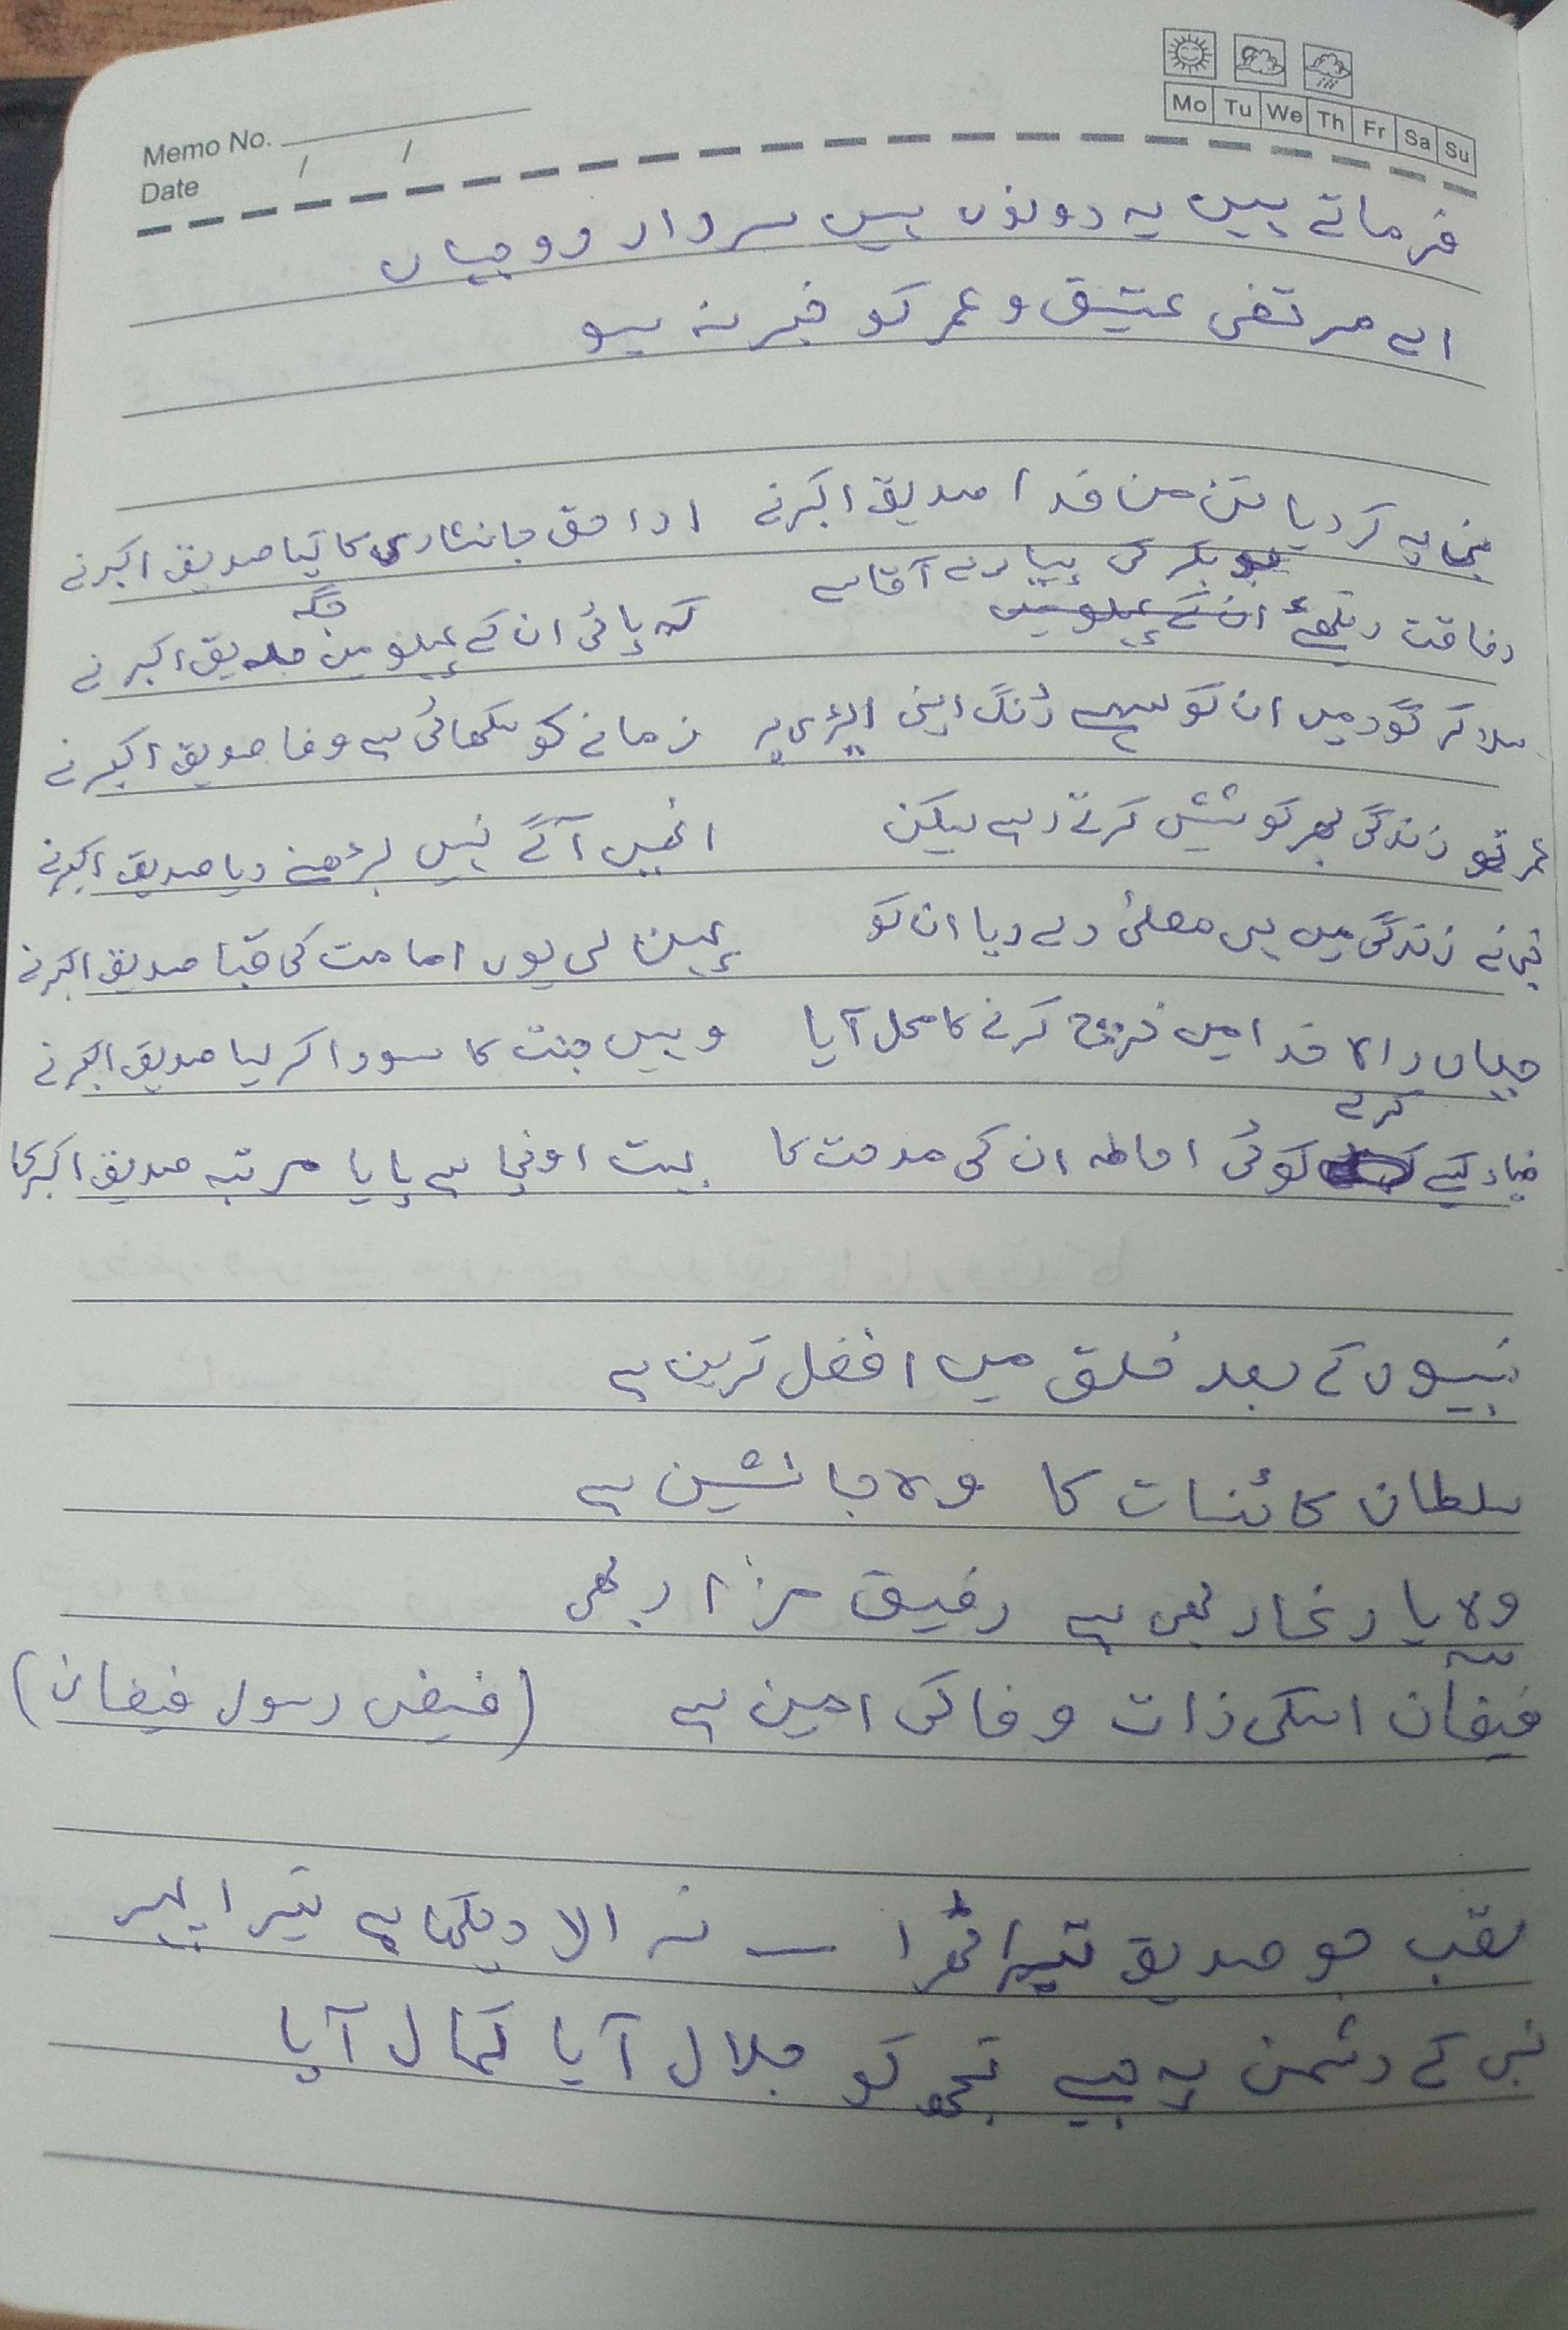 Mo Tu We Th Fr Sa Su
Memo No.
Date / /
فرماتے ہیں یہ دونوں ہیں سردار دو جہاں
اے مرتضی عتیق و عمر کو خبر نہ ہو
نبی پہ کر دیا تن من فدا صدیق اکبر نے ادا حق جانثاری کا کیا صدیق اکبر نے
رفاقت دیکھئے بو بکر کی پیارے آقا سے کہ پائی ان کے پہلو میں جگہ صدیق اکبر نے
سلا کر گود میں ان کو سہے ڈنگ اپنی ایڑی پر زمانے کو سکھائی ہے وفا صدیق اکبر نے
عمر تو زندگی بھر کوشش کرتے رہے لیکن انھیں آگے نہیں بڑھنے دیا صدیق اکبر نے
نبی نے زندگی میں ہی مصلیٰ دے دیا ان کو پہن لی یوں امامت کی قبا صدیق اکبر نے
جہاں راہ خدا میں خرچ کرنے کا محل آیا وہیں جنت کا سودا کر لیا صدیق اکبر نے
کیسے کرے کوئی احاطہ ان کی مدحت کا بہت اونچا ہے پایا مرتبہ صدیق اکبر کا
نبیوں کے بعد خلق میں افضل ترین ہے
سلطان کائنات کا وہ جانشین ہے
وہ یار غار بھی ہے رفیق مزار بھی
فیضان اسکی ذات وفا کی امین ہے (فیض رسول فیضان)
لقب جو صدیق تیرا ٹھہرا — نرالا دیکھا ہے تیرا پہرہ
نبی کے دشمن پہ جیسے تجھ کو جلال آیا کمال آیا